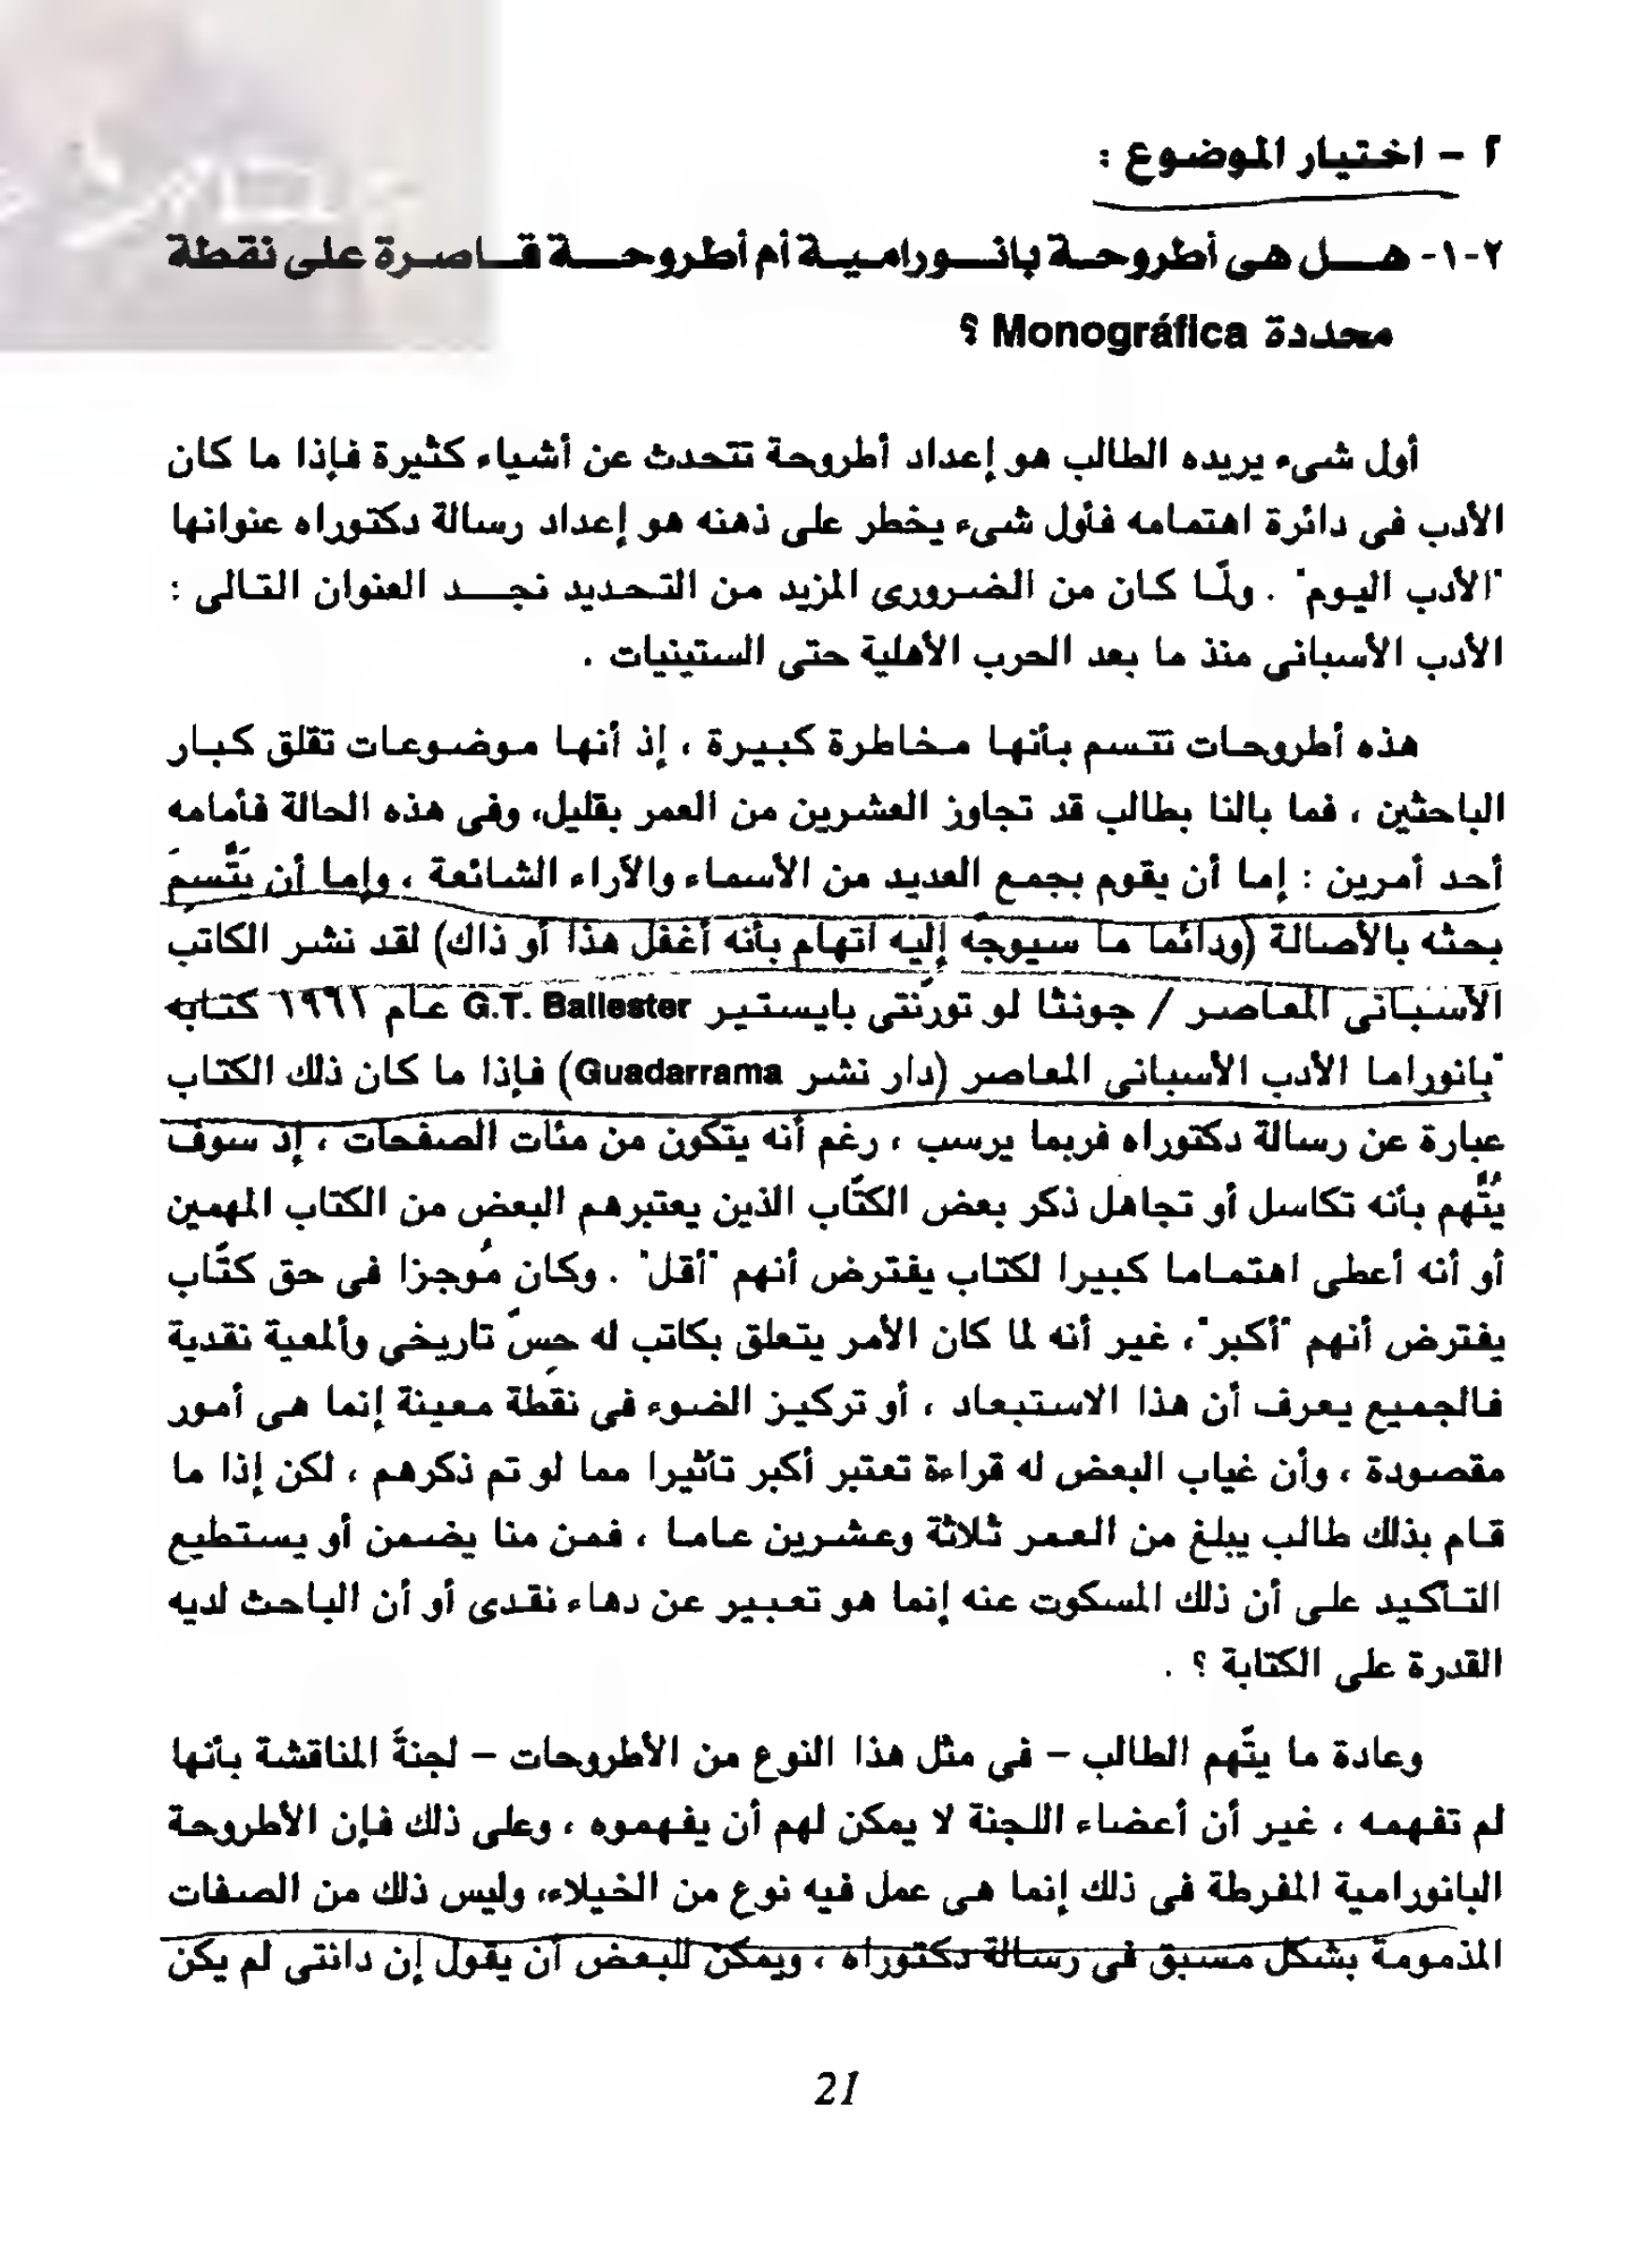 ٢ - اختيار الموضوع :
٢-١- هل هى أطروحة بانورامية أم أطروحة قاصرة على نقطة
محددة Monográfica ؟
أول شىء يريده الطالب هو إعداد أطروحة تتحدث عن أشياء كثيرة فإذا ما كان
الأدب فى دائرة اهتمامه فأول شىء يخطر على ذهنه هو إعداد رسالة دكتوراه عنوانها
"الأدب اليوم" . ولمّا كان من الضرورى المزيد من التحديد نجد العنوان التالى :
الأدب الأسبانى منذ ما بعد الحرب الأهلية حتى الستينيات .
هذه أطروحات تتسم بأنها مخاطرة كبيرة ، إذ أنها موضوعات تقلق كبار
الباحثين ، فما بالنا بطالب قد تجاوز العشرين من العمر بقليل، وفى هذه الحالة فأمامه
أحد أمرين : إما أن يقوم بجمع العديد من الأسماء والآراء الشائعة ، وإما أن يَتَّسمَ
بحثه بالأصالة (ودائما ما سيوجه إليه اتهام بأنه أغفل هذا أو ذاك) لقد نشر الكاتب
الأسبانى المعاصر / جونثا لو تورنتى بايستير G.T. Ballester عام ١٩٦١ كتابه
"بانوراما الأدب الأسبانى المعاصر (دار نشر Guadarrama) فإذا ما كان ذلك الكتاب
عبارة عن رسالة دكتوراه فربما يرسب ، رغم أنه يتكون من مئات الصفحات ، إذ سوف
يُتَّهم بأنه تكاسل أو تجاهل ذكر بعض الكتّاب الذين يعتبرهم البعض من الكتاب المهمين
أو أنه أعطى اهتماما كبيرا لكتاب يفترض أنهم "أقل" . وكان مُوجزا فى حق كتّاب
يفترض أنهم "أكبر"، غير أنه لما كان الأمر يتعلق بكاتب له حِسّ تاريخى وألمعية نقدية
فالجميع يعرف أن هذا الاستبعاد ، أو تركيز الضوء فى نقطة معينة إنما هى أمور
مقصودة ، وأن غياب البعض له قراءة تعتبر أكبر تأثيرا مما لو تم ذكرهم ، لكن إذا ما
قام بذلك طالب يبلغ من العمر ثلاثة وعشرين عاما ، فمن منا يضمن أو يستطيع
التأكيد على أن ذلك المسكوت عنه إنما هو تعبير عن دهاء نقدى أو أن الباحث لديه
القدرة على الكتابة ؟ .
وعادة ما يتّهم الطالب - فى مثل هذا النوع من الأطروحات - لجنةَ المناقشة بأنها
لم تفهمه ، غير أن أعضاء اللجنة لا يمكن لهم أن يفهموه ، وعلى ذلك فإن الأطروحة
البانورامية المفرطة فى ذلك إنما هى عمل فيه نوع من الخيلاء، وليس ذلك من الصفات
المذمومة بشكل مسبق فى رسالة دكتوراه ، ويمكن للبعض أن يقول إن دانتى لم يكن
21